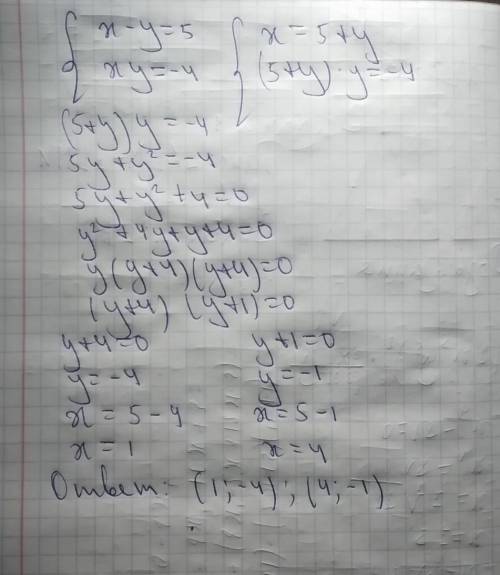 { x - y = 5 { x = 5 + y
xy = -4 (5+y)·y = -4
(5+y) y = -4
5y + y² = -4
5y + y² + 4 = 0
y² + 4y + y + 4 = 0
y(y+4)(y+4) = 0
(y+4) (y+1) = 0
y + 4 = 0 y + 1 = 0
y = -4 y = -1
x = 5 - 4 x = 5 - 1
x = 1 x = 4
Ответ: (1; -4); (4; -1)